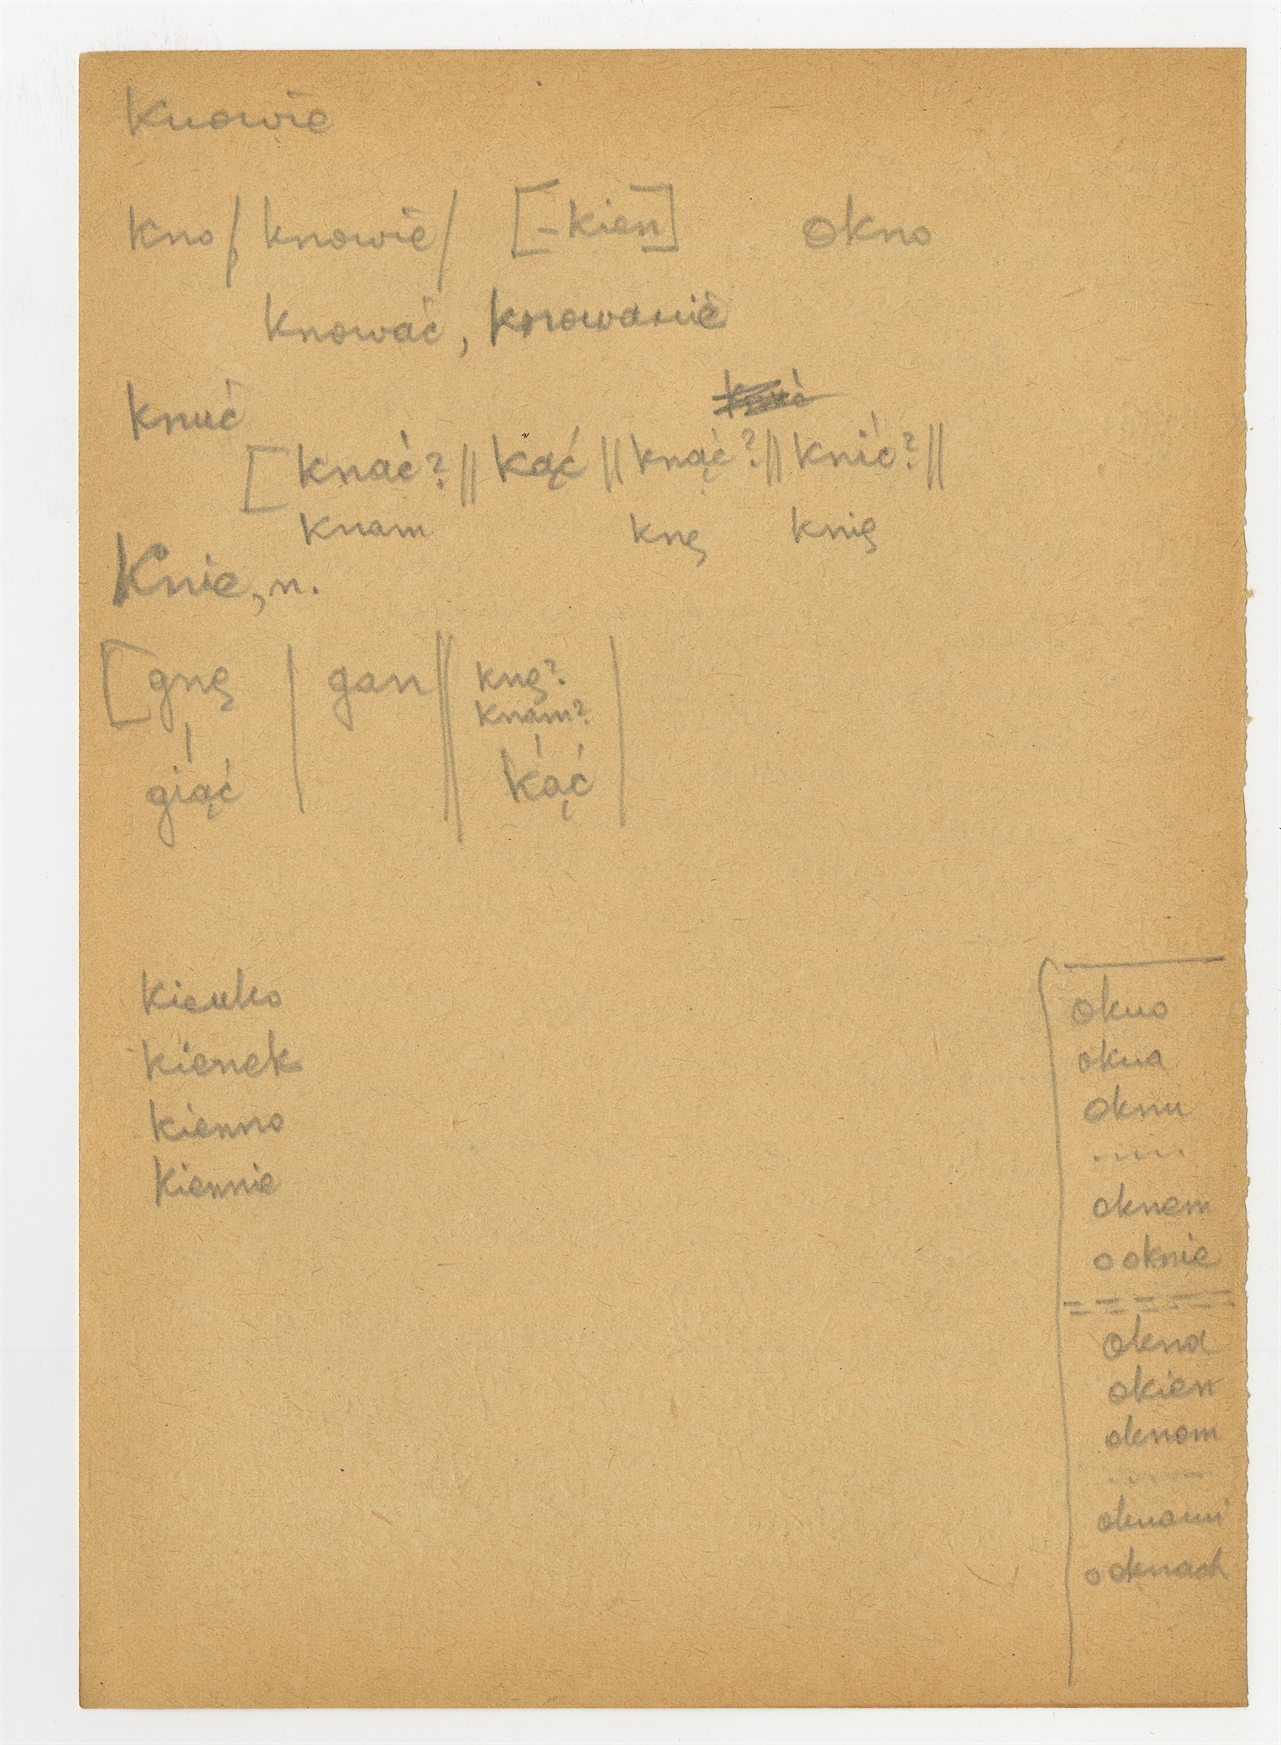 Knowie
kno/, knowie/ [-kien] okno
knować, knowanie
knuć
[knać? || kąć || knąć? || knić? ||
knam knę knię
Knie, n.
[gnę | gan || knę? |
knam?
giąć kąć
kienko
kienek
kienno
kiennie
okno
okna
oknu
.....
oknem
o oknie
okna
okien
oknom
.....
oknami
o oknach